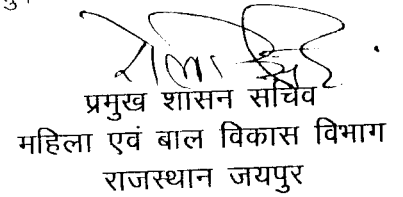 प्रमुख शासन सचिव
महिला एवं बाल विकास विभाग
राजस्थान जयपुर